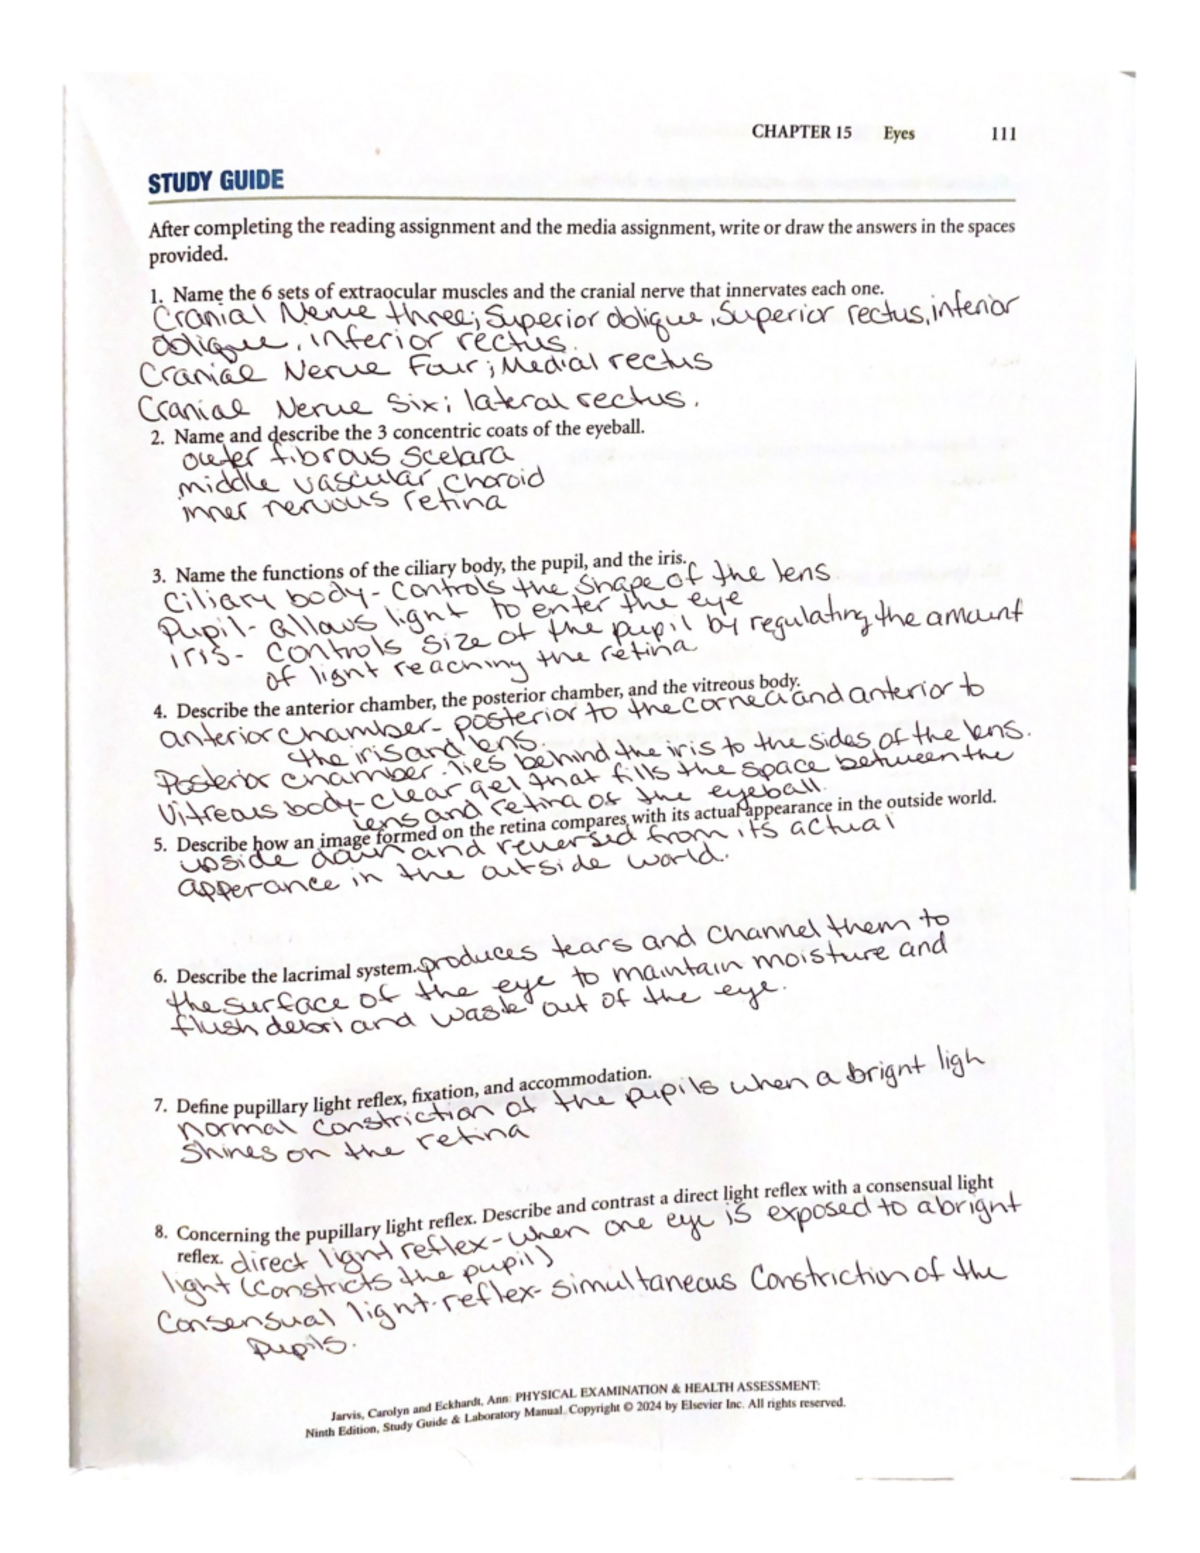 CHAPTER 15 Eyes 111
STUDY GUIDE
After completing the reading assignment and the media assignment, write or draw the answers in the spaces
provided.
1. Name the 6 sets of extraocular muscles and the cranial nerve that innervates each one.
Cranial Nerve three; Superior oblique, Superior rectus, inferior
oblique, inferior rectus.
Cranial Nerve Four; Medial rectus
Cranial Nerve Six; lateral rectus.
2. Name and describe the 3 concentric coats of the eyeball.
outer fibrous scelara
middle vascular choroid
inner nervous retina
3. Name the functions of the ciliary body, the pupil, and the iris.
Ciliary body - Controls the shape of the lens
Pupil - allows light to enter the eye
iris - Controls size of the pupil by regulating the amount
of light reaching the retina
4. Describe the anterior chamber, the posterior chamber, and the vitreous body.
anterior chamber - posterior to the cornea and anterior to
the iris and lens.
Posterior chamber - lies behind the iris to the sides of the lens.
Vitreous body - clear gel that fills the space between the
lens and retina of the eyeball.
5. Describe how an image formed on the retina compares with its actual appearance in the outside world.
upside down and reversed from its actual
apperance in the outside world.
6. Describe the lacrimal system. produces tears and channel them to
the surface of the eye to maintain moisture and
flush debri and waste out of the eye.
7. Define pupillary light reflex, fixation, and accommodation.
normal constriction of the pupils when a bright ligh
shines on the retina
8. Concerning the pupillary light reflex. Describe and contrast a direct light reflex with a consensual light
reflex. direct light reflex - when one eye is exposed to a bright
light (constricts the pupil)
Consensual light reflex - simultaneous Constriction of the
pupils.
Jarvis, Carolyn and Eckhardt, Ann: PHYSICAL EXAMINATION & HEALTH ASSESSMENT:
Ninth Edition, Study Guide & Laboratory Manual. Copyright © 2024 by Elsevier Inc. All rights reserved.